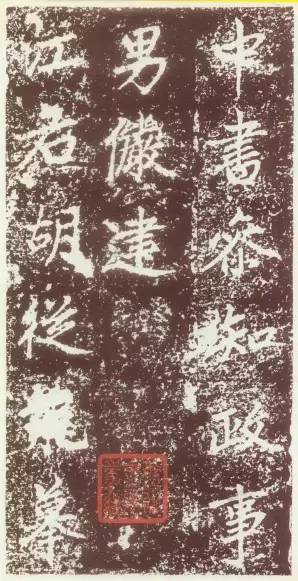 中書參知政事
男儼建
江君胡從
摹